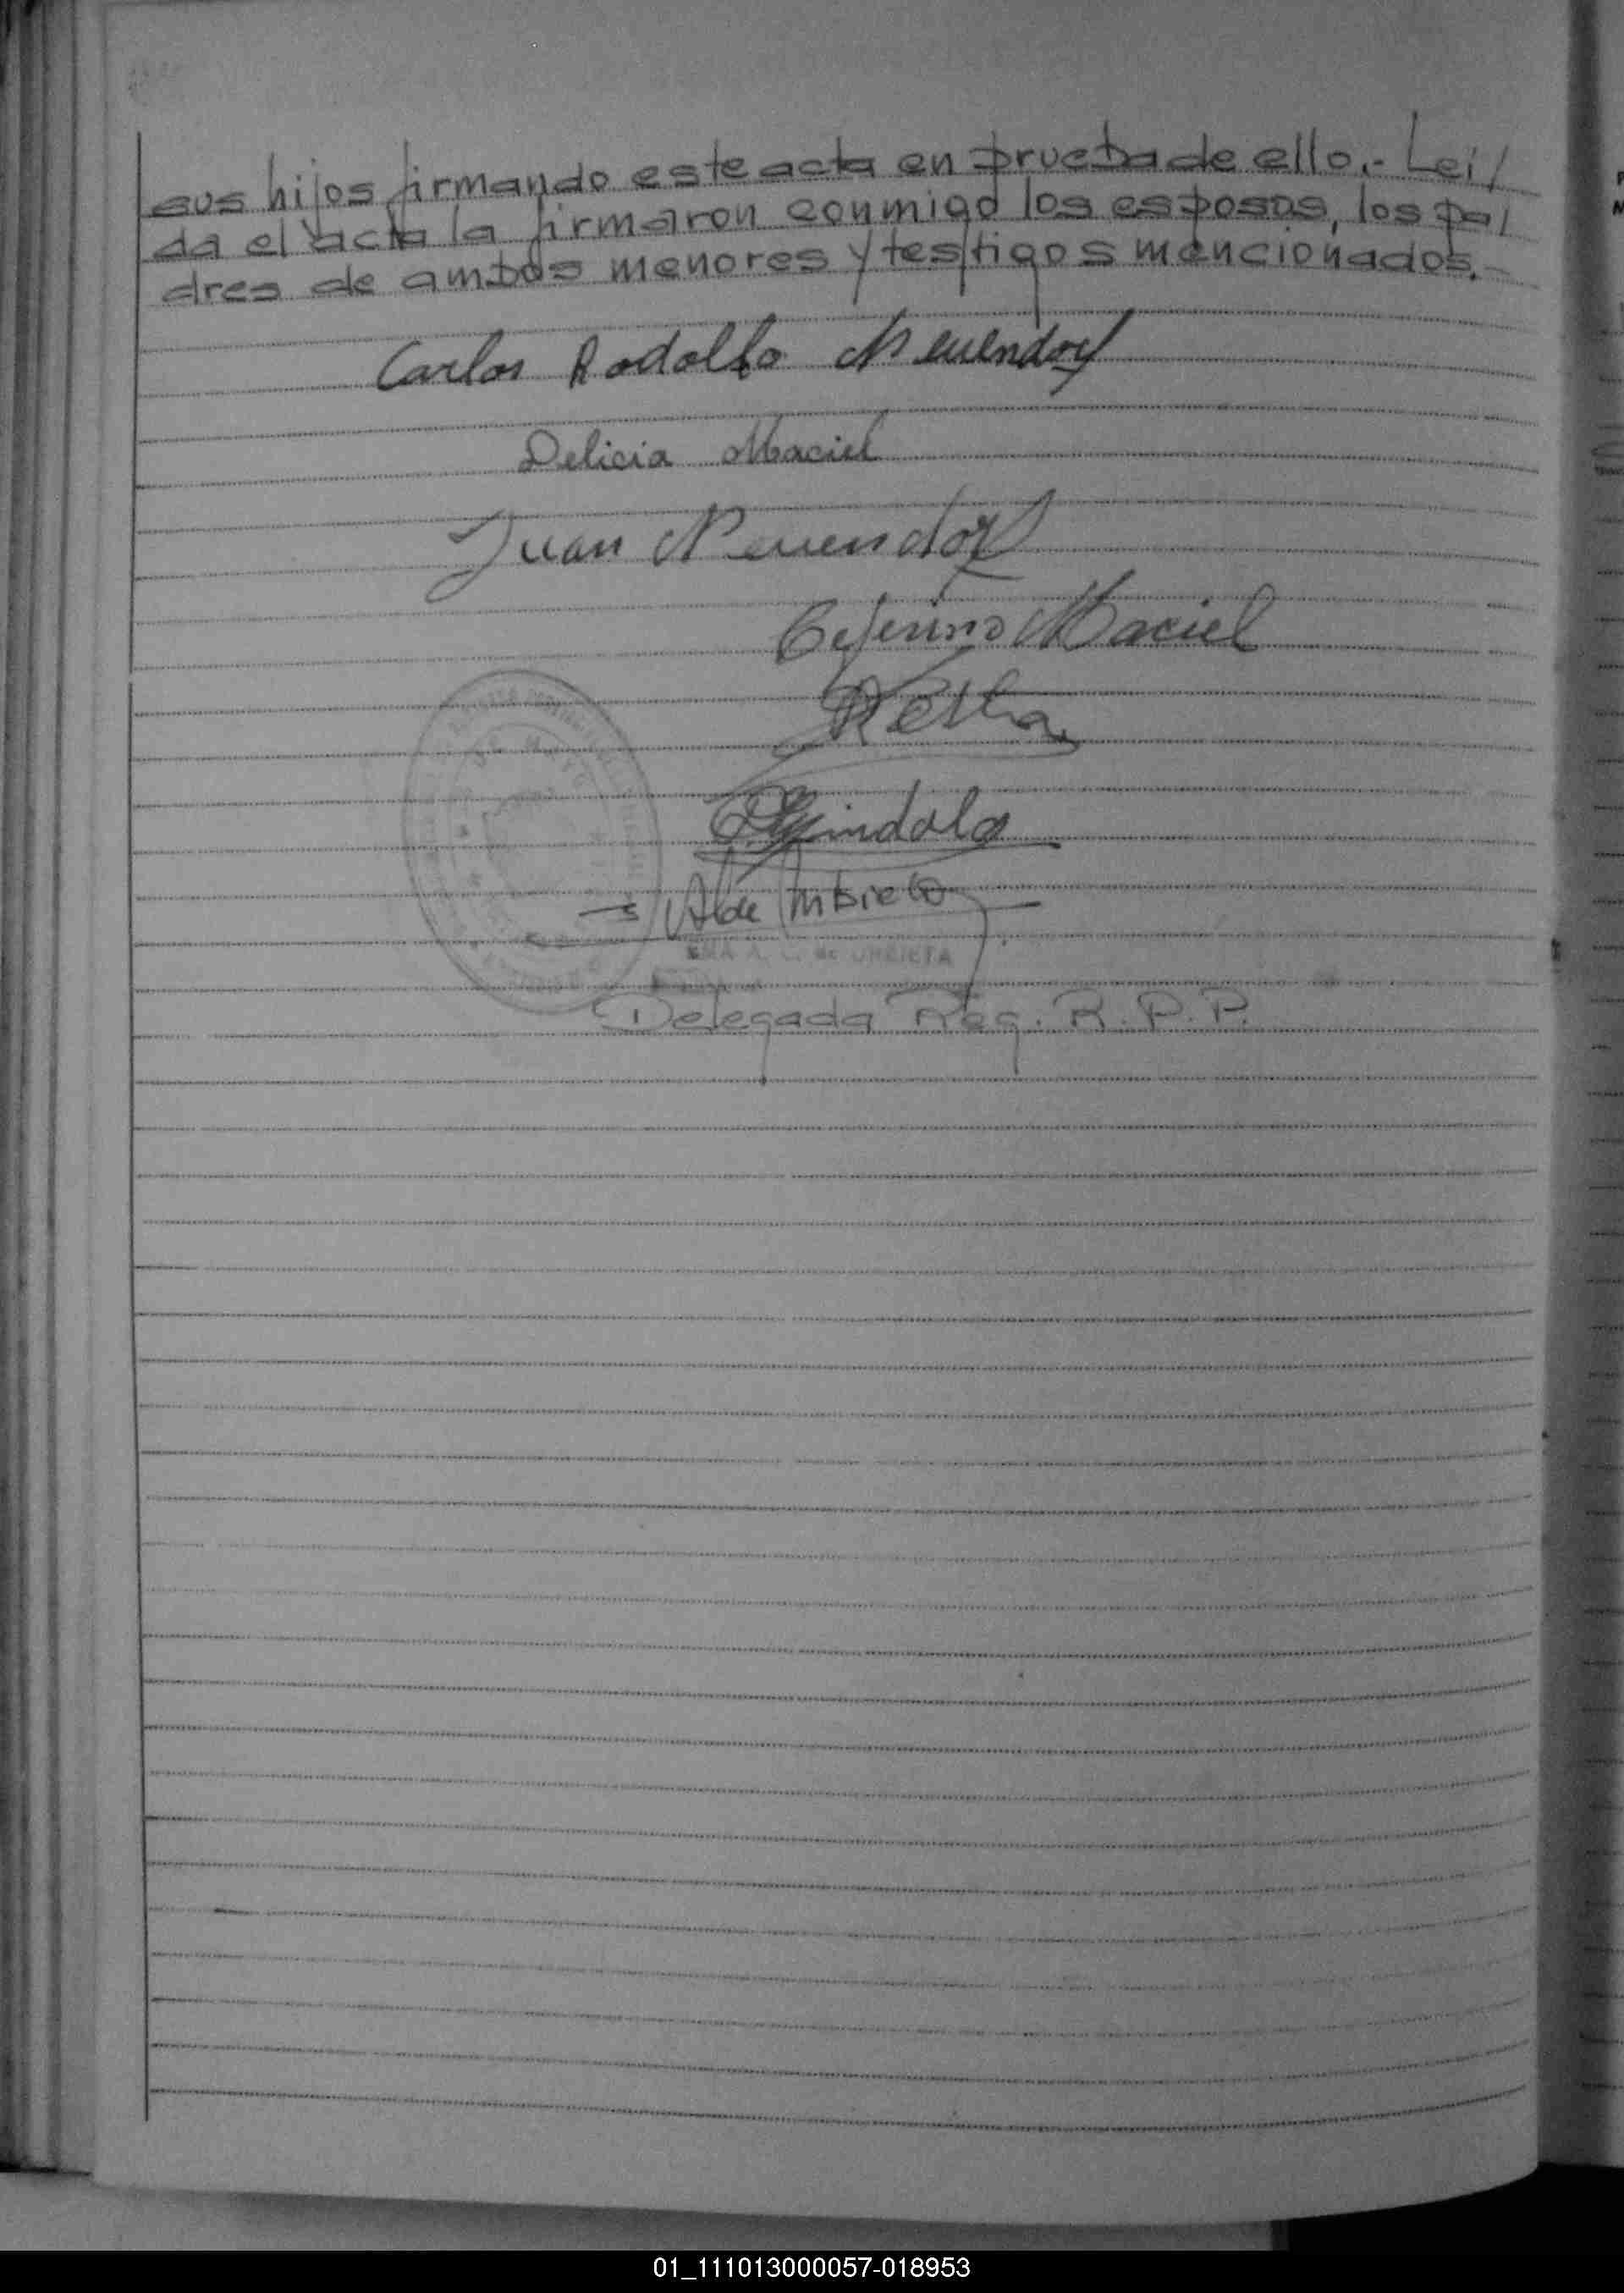 sus hijos firmando este acta en prueba de ello.- Leí/
da el acta la firmaron conmigo los esposos, los pa/
dres de ambos menores y testigos mencionados.-
Carlos Rodolfo Neuendorf
Delicia Maciel
Juan Neuendorf
Ceferino Maciel
de URBIETA
Delegada Reg. R. P. P.
01_111013000057-018953